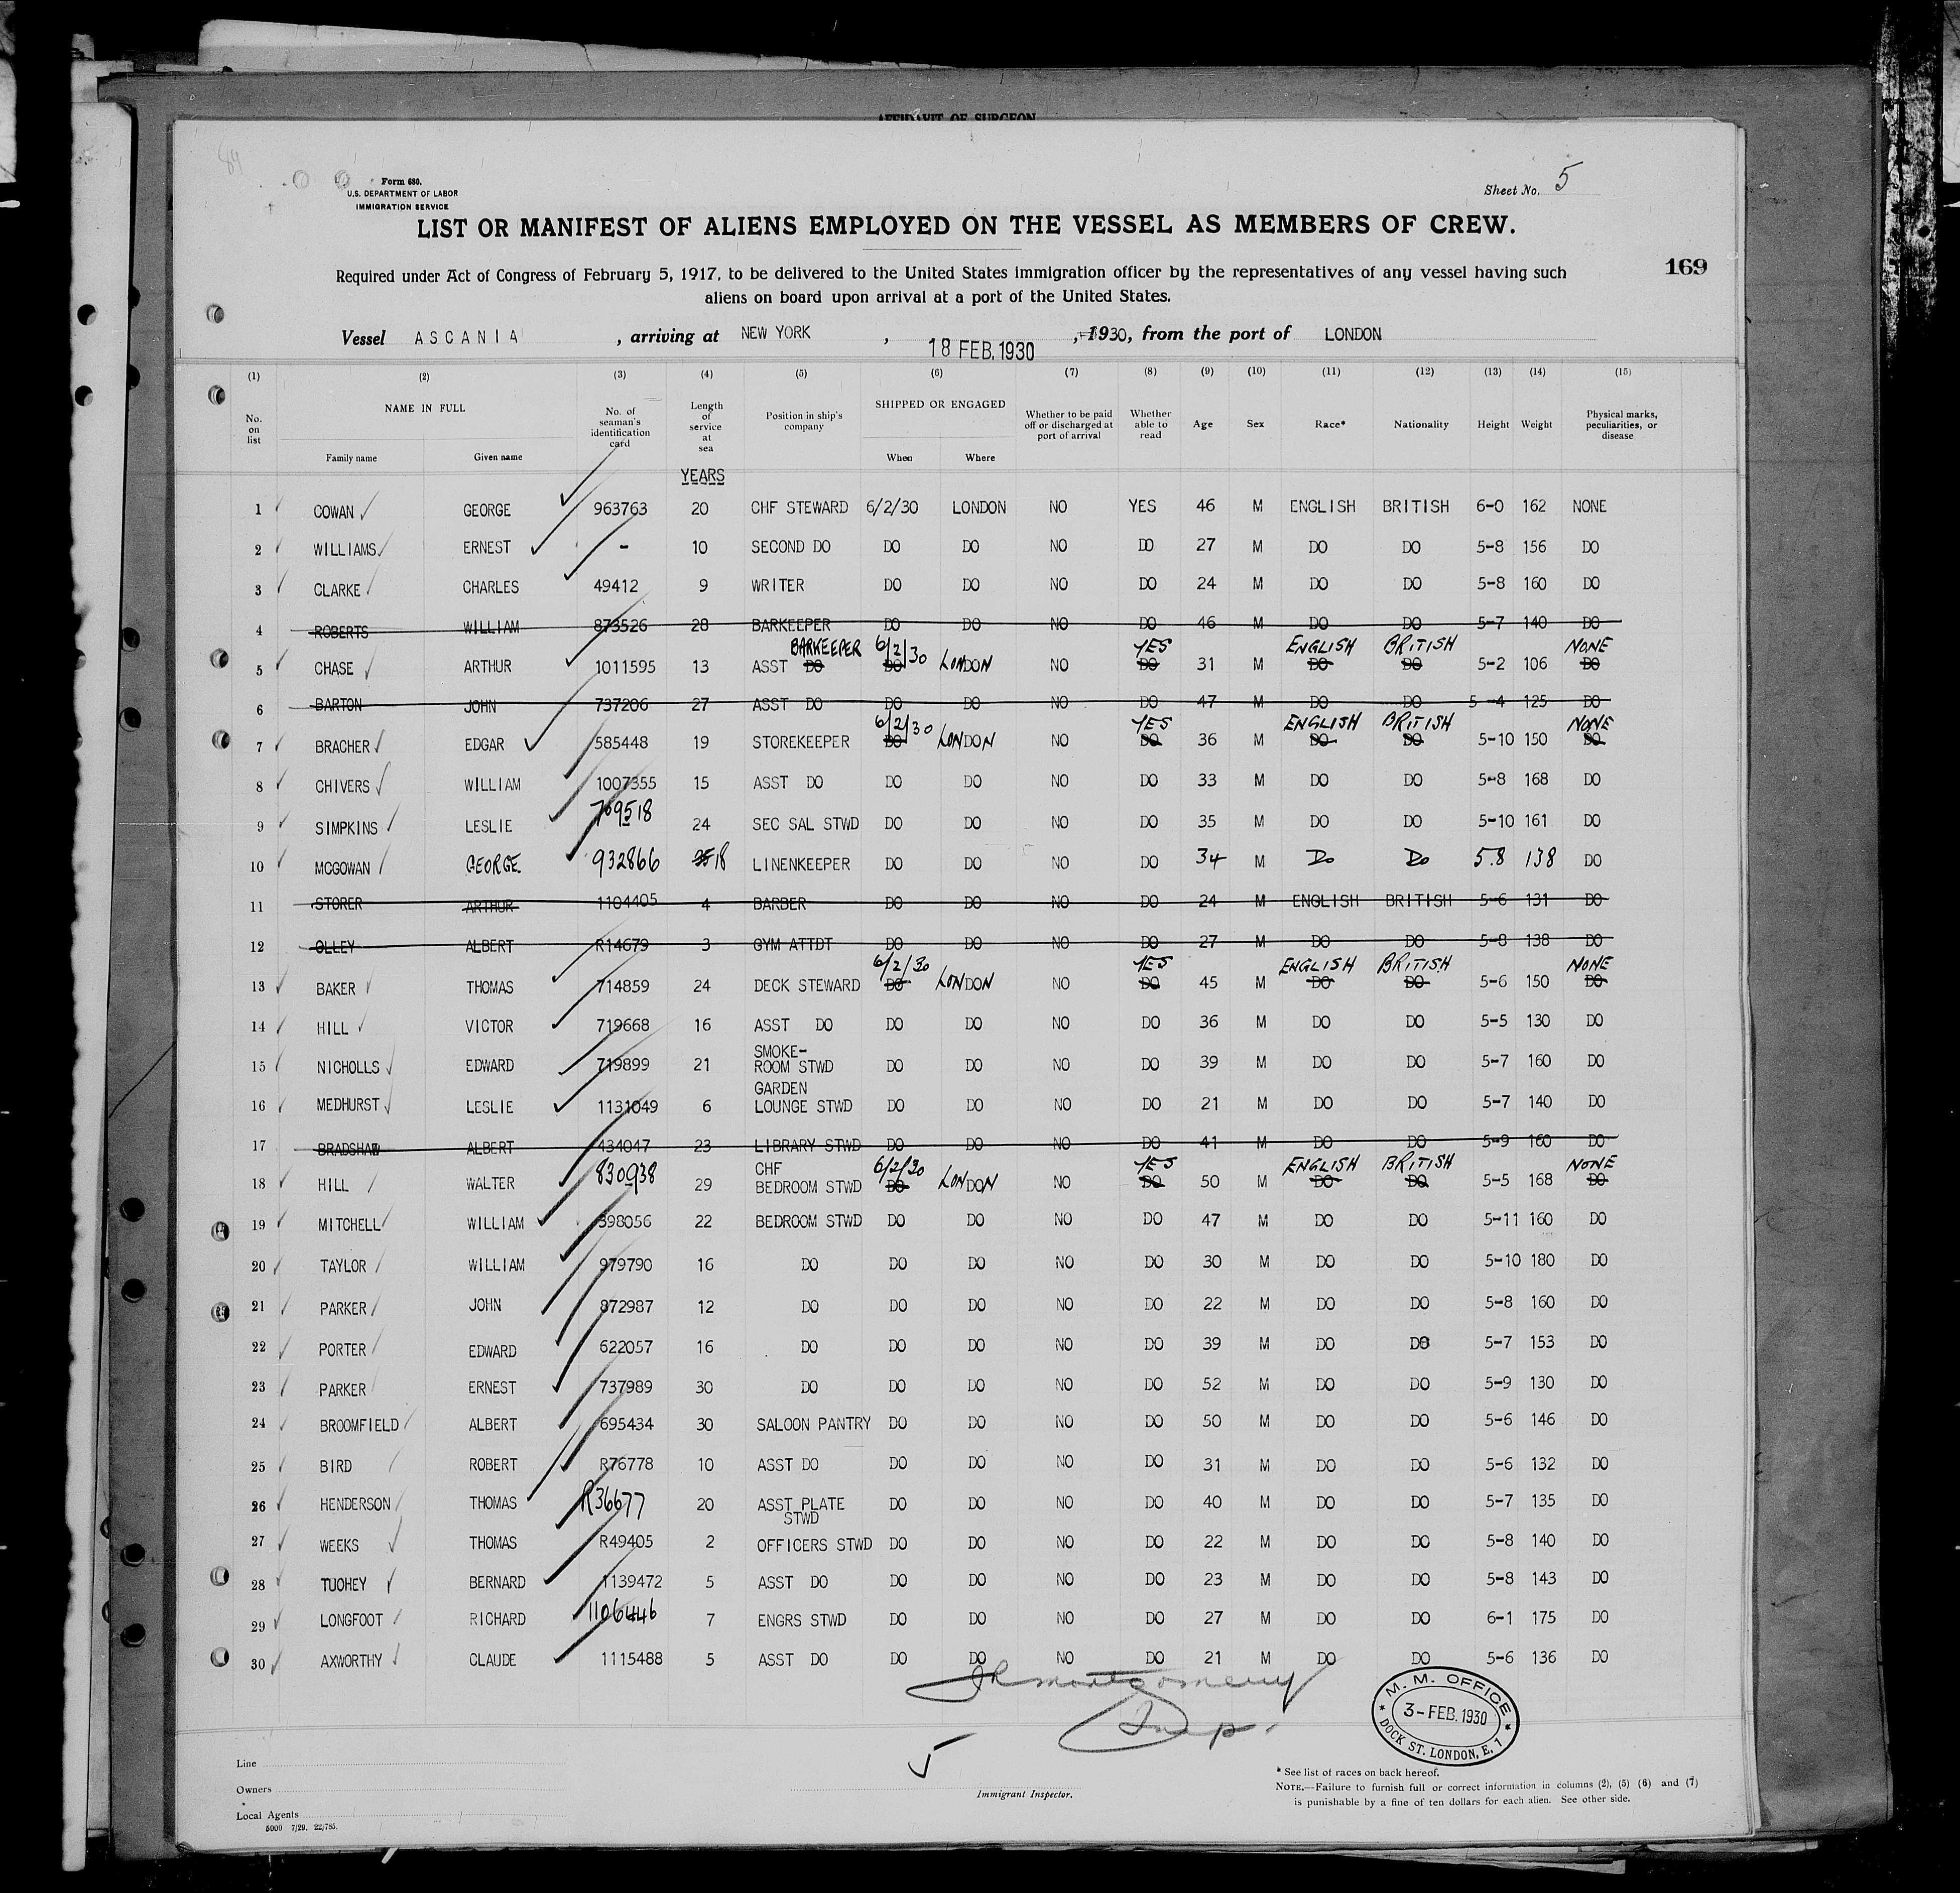 AFFIDAVIT OF SURGEON
Form 680.
U.S. DEPARTMENT OF LABOR
IMMIGRATION SERVICE
Sheet No. 5
LIST OR MANIFEST OF ALIENS EMPLOYED ON THE VESSEL AS MEMBERS OF CREW.
169
Required under Act of Congress of February 5, 1917, to be delivered to the United States immigration officer by the representatives of any vessel having such
aliens on board upon arrival at a port of the United States.
Vessel ASCANIA, arriving at NEW YORK, 18 FEB. 1930, 1930, from the port of LONDON
(1) (2) (3) (4) (5) (6) (7) (8) (9) (10) (11) (12) (13) (14) (15)
No. on list NAME IN FULL Family name Given name No. of seaman's identification card Length of service at sea Position in ship's company SHIPPED OR ENGAGED When Where Whether to be paid off or discharged at port of arrival Whether able to read Age Sex Race* Nationality Height Weight Physical marks, peculiarities, or disease
YEARS
1 COWAN GEORGE 963763 20 CHF STEWARD 6/2/30 LONDON NO YES 46 M ENGLISH BRITISH 6-0 162 NONE
2 WILLIAMS ERNEST - 10 SECOND DO DO DO NO DO 27 M DO DO 5-8 156 DO
3 CLARKE CHARLES 49412 9 WRITER DO DO NO DO 24 M DO DO 5-8 160 DO
4 ROBERTS WILLIAM 873526 28 BARKEEPER DO DO NO DO 46 M DO DO 5-7 140 DO
BARKEEPER 6/2/30 YES ENGLISH BRITISH NONE
5 CHASE ARTHUR 1011595 13 ASST DO DO LONDON NO DO 31 M DO DO 5-2 106 DO
6 BARTON JOHN 737206 27 ASST DO DO DO NO DO 47 M DO DO 5-4 125 DO
6/2/30 YES ENGLISH BRITISH NONE
7 BRACHER EDGAR 585448 19 STOREKEEPER DO LONDON NO DO 36 M DO DO 5-10 150 DO
8 CHIVERS WILLIAM 1007355 15 ASST DO DO DO NO DO 33 M DO DO 5-8 168 DO
9 SIMPKINS LESLIE 769518 24 SEC SAL STWD DO DO NO DO 35 M DO DO 5-10 161 DO
10 MCGOWAN GEORGE 932866 18 LINENKEEPER DO DO NO DO 34 M Do Do 5.8 138 DO
11 STORER ARTHUR 1104405 4 BARBER DO DO NO DO 24 M ENGLISH BRITISH 5-6 131 DO
12 OLLEY ALBERT R14679 3 GYM ATTDT DO DO NO DO 27 M DO DO 5-8 138 DO
6/2/30 YES ENGLISH BRITISH NONE
13 BAKER THOMAS 714859 24 DECK STEWARD DO LONDON NO DO 45 M DO DO 5-6 150 DO
14 HILL VICTOR 719668 16 ASST DO DO DO NO DO 36 M DO DO 5-5 130 DO
SMOKE-
15 NICHOLLS EDWARD 719899 21 ROOM STWD DO DO NO DO 39 M DO DO 5-7 160 DO
GARDEN
16 MEDHURST LESLIE 1131049 6 LOUNGE STWD DO DO NO DO 21 M DO DO 5-7 140 DO
17 BRADSHAW ALBERT 434047 23 LIBRARY STWD DO DO NO DO 41 M DO DO 5-9 160 DO
CHF 6/2/30 YES ENGLISH BRITISH NONE
18 HILL WALTER 830938 29 BEDROOM STWD DO LONDON NO DO 50 M DO DO 5-5 168 DO
19 MITCHELL WILLIAM 398056 22 BEDROOM STWD DO DO NO DO 47 M DO DO 5-11 160 DO
20 TAYLOR WILLIAM 979790 16 DO DO DO NO DO 30 M DO DO 5-10 180 DO
21 PARKER JOHN 872987 12 DO DO DO NO DO 22 M DO DO 5-8 160 DO
22 PORTER EDWARD 622057 16 DO DO DO NO DO 39 M DO DO 5-7 153 DO
23 PARKER ERNEST 737989 30 DO DO DO NO DO 52 M DO DO 5-9 130 DO
24 BROOMFIELD ALBERT 695434 30 SALOON PANTRY DO DO NO DO 50 M DO DO 5-6 146 DO
25 BIRD ROBERT R76778 10 ASST DO DO DO NO DO 31 M DO DO 5-6 132 DO
26 HENDERSON THOMAS R36677 20 ASST PLATE DO DO NO DO 40 M DO DO 5-7 135 DO
STWD
27 WEEKS THOMAS R49405 2 OFFICERS STWD DO DO NO DO 22 M DO DO 5-8 140 DO
28 TUOHEY BERNARD 1139472 5 ASST DO DO DO NO DO 23 M DO DO 5-8 143 DO
29 LONGFOOT RICHARD 1106446 7 ENGRS STWD DO DO NO DO 27 M DO DO 6-1 175 DO
30 AXWORTHY CLAUDE 1115488 5 ASST DO DO DO NO DO 21 M DO DO 5-6 136 DO
JR Montgomery
Insp.
M. M. OFFICE
3 - FEB. 1930
DOCK ST. LONDON, E. 1
Line
Owners
Local Agents
5000 7/29. 22/785.
Immigrant Inspector.
* See list of races on back hereof.
NOTE.—Failure to furnish full or correct information in columns (2), (5) (6) and (7)
is punishable by a fine of ten dollars for each alien. See other side.